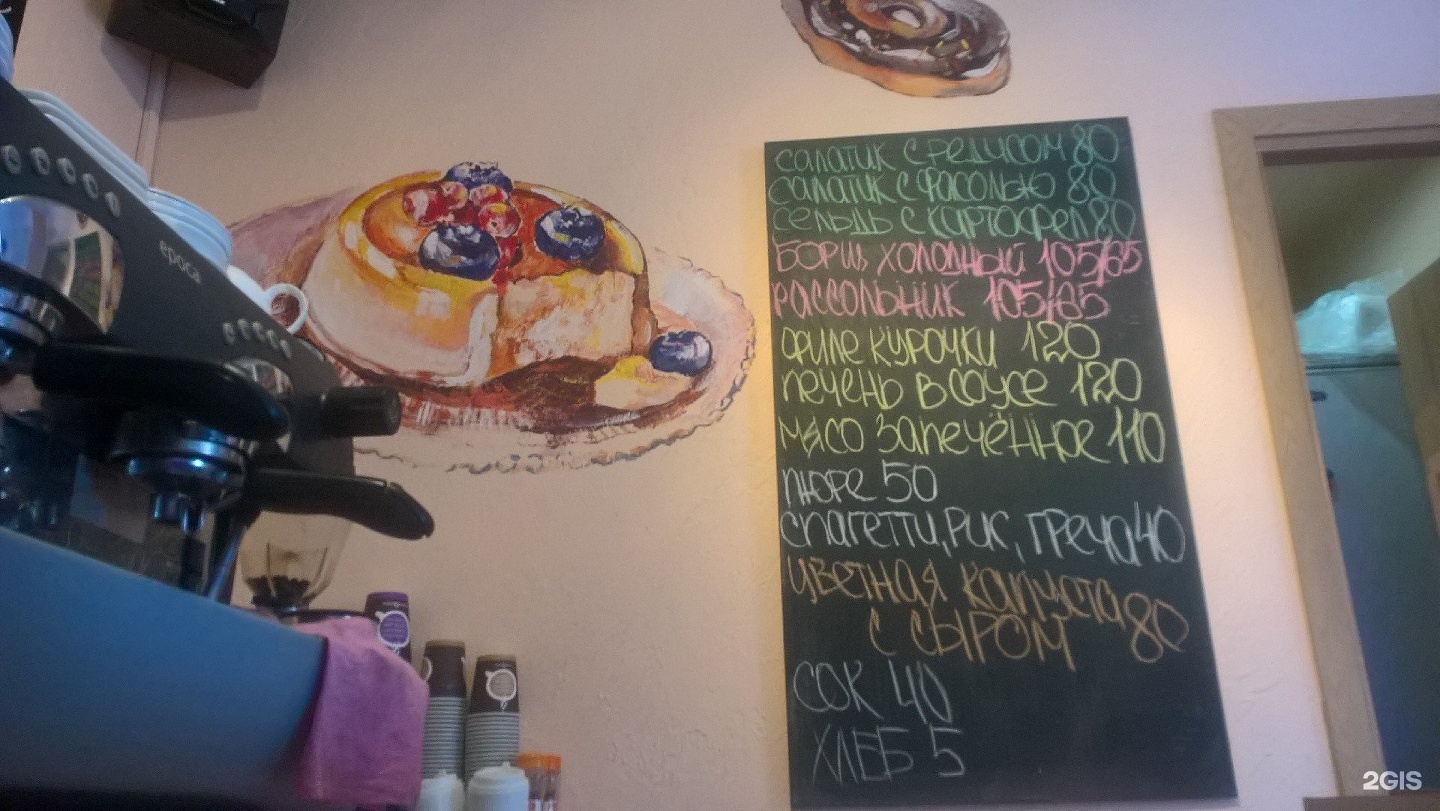 epoca
салатик с редисом 80
салатик с фасолью 80
сельдь с картофел 80
борщ холодный 105/65
рассольник 105/65
филе курочки 120
печень в соусе 120
мясо запечённое 110
пюре 50
спагетти, рис, греча 40
цветная капуста 80
с сыром
сок 40
хлеб 5
2GIS